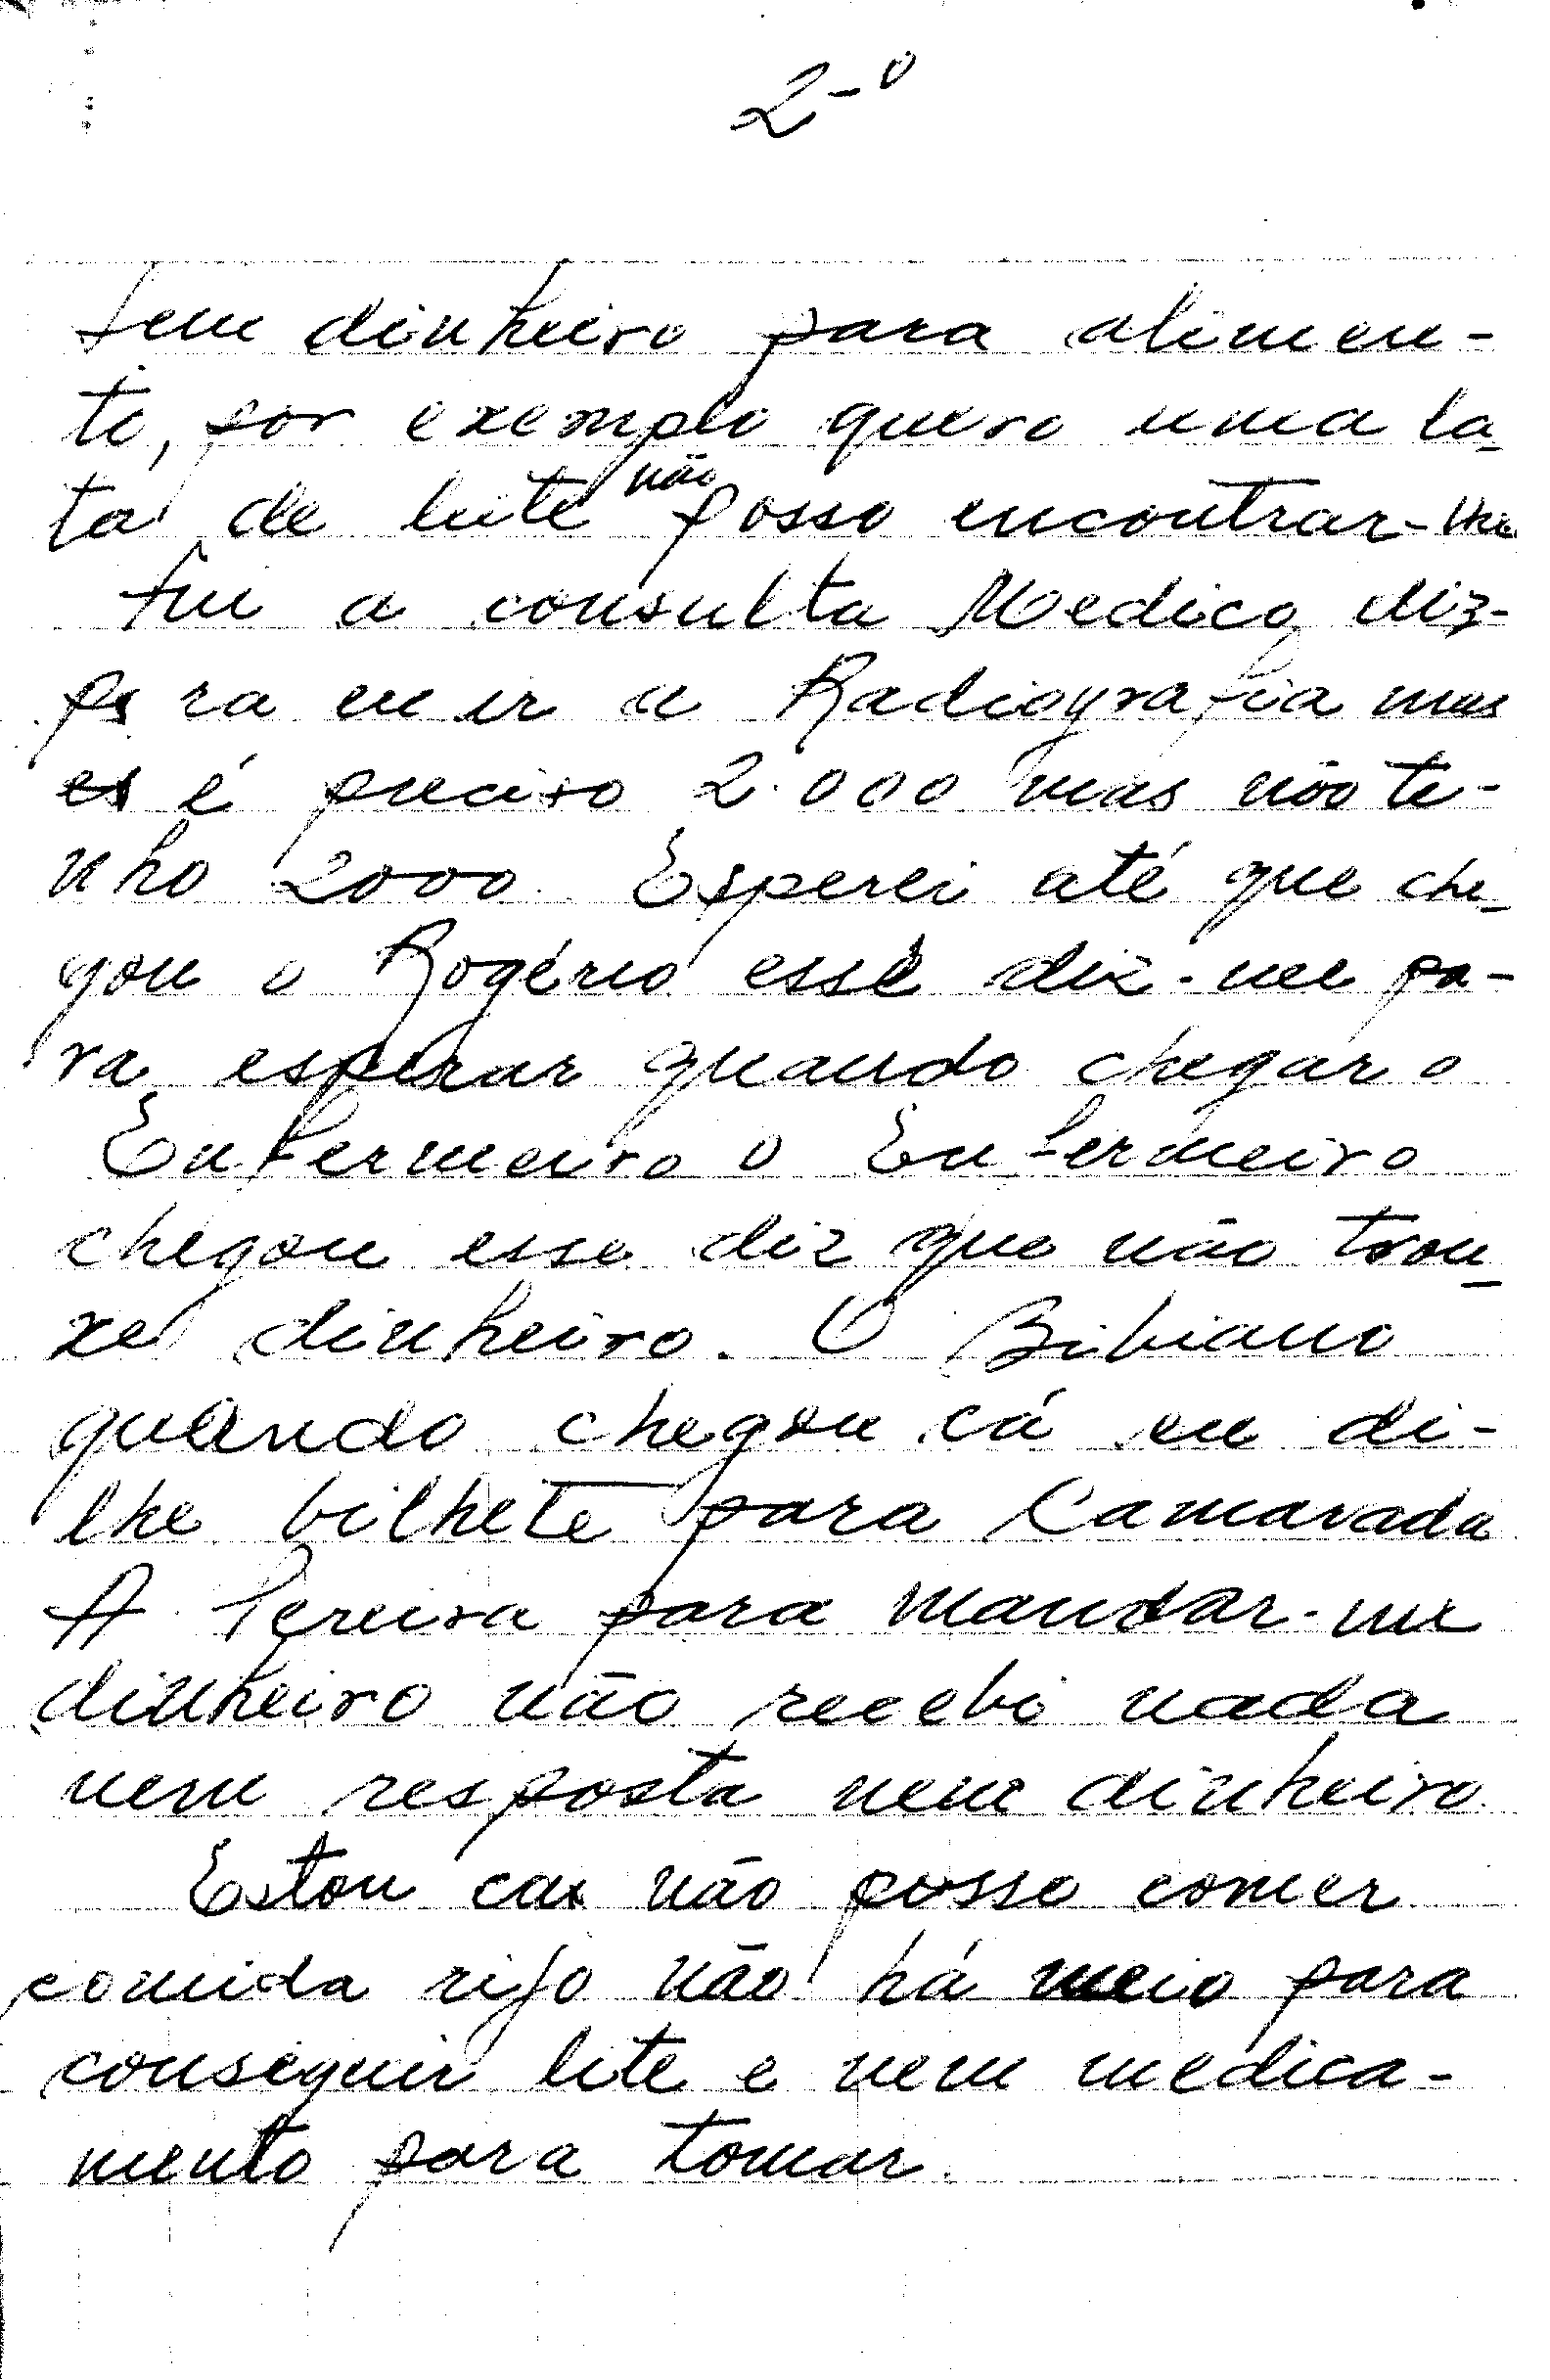 2-º
tem dinheiro para alimen-
to, por exemplo quero uma la-
ta de leite não posso encontrar-me
fui a consulta Medico, diz-
para eu ir a Radiografia mas
es é preciso 2.000 mas não te-
nho 2000. Esperei até que che-
gou o Rogério esse diz-me pa-
ra esperar quando chegar o
Enfermeiro o Enfermeiro
chegou esse diz que não trou-
xe dinheiro. O Bibiano
quando chegou cá eu di-
lhe bilhete para Camarada
A. Pereira para mandar-me
dinheiro não recebi nada
nem resposta nem dinheiro
Estou cax não posso comer
comida rijo não há meio para
conseguir lite e nem medica-
mento para tomar.